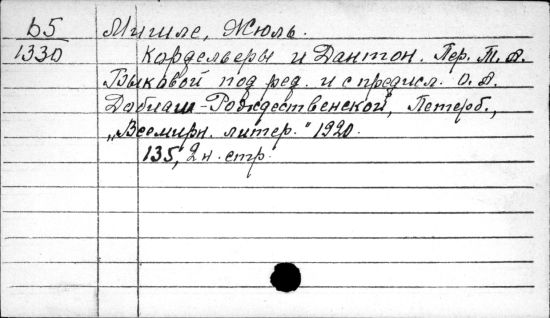 b5 Мишле, Жюль.
1330 Кордельеры и Дантон. Пер. Т. А.
Быковой под ред. и с предисл. О. А.
Добиаш-Рождественской, Петерб.,
„Всемирн. литер." 1920.
135, 2 н. стр.